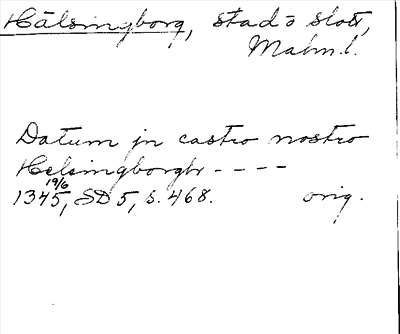 Hälsingborg, stad o slott,
Malm. l.
Datum in castro nostro
Helsingborgh - - - -
19/6
1345, SD 5, s. 468. orig.